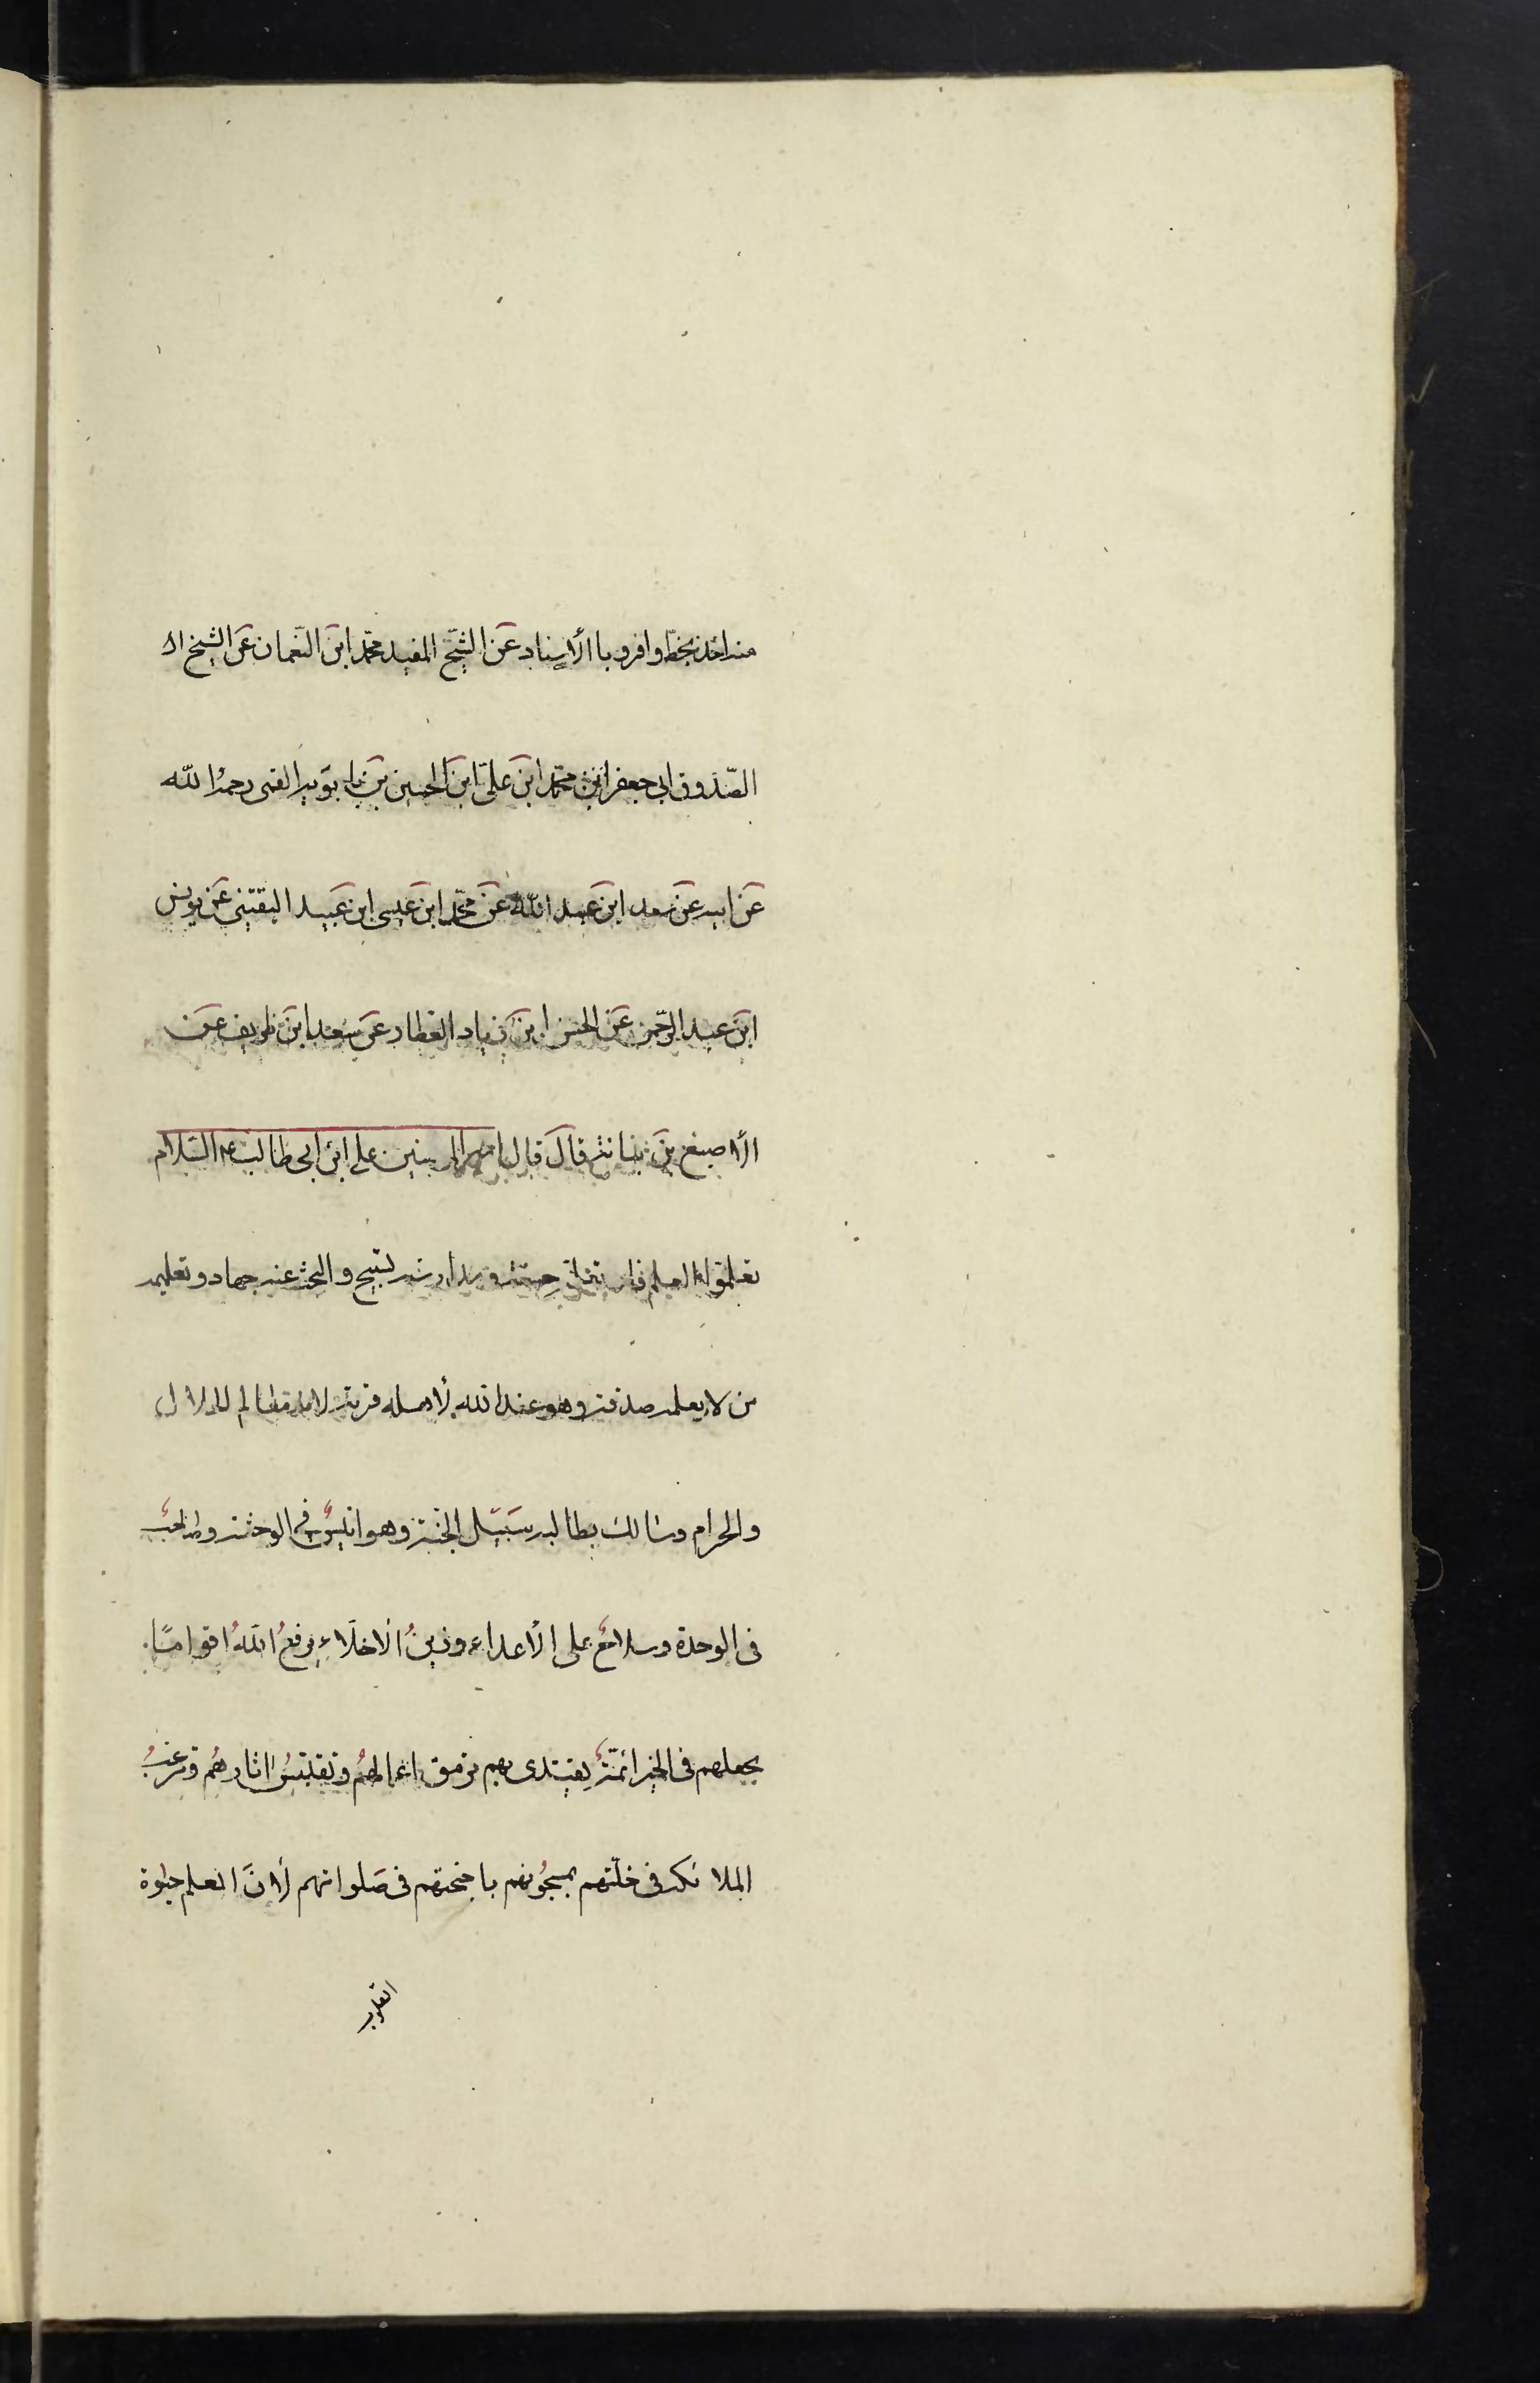 منه اخذ بخطّ وافرو باالأسناد عَن الشّيخ المفيد محمّد ابن النّعمان عَن الشيخ الا
الصّدوق ابي جعفر ابن محمّد ابن علىّ ابن الحسين بن بابويه القمى رحمهُ اللّه
عَن ابيه عَن سعد ابن عبد اللّه عَن محمّد ابن عيسى ابن عبيد اليقتينى عَن يونس
ابن عبد الرّحمن عَن الحسن ابن زياد العطار عَن سعد ابن ظريف عَن
الأصبغ بن نباته قال قال امير المؤمنين على ابن ابى طالب ع السّلام
تعلموا العلم فان تعلمه حسنة ومدارسته تسبيح والبحث عنه جهاد وتعليمه
من لا يعلمه صدقة وهو عند الله لأهله قربة لانه معالم الحلال
والحرام وسالك بطالبه سبيل الجنة وهو انيسٌ فى الوحشة وصاحبٌ
فى الوحدة وسلاحٌ على الأعداء وزينُ الأخلّاء يرفعُ اللهُ اقوامًا
يجعلهم فى الخير ائمّةً يقتدى بهم ترمق اعمالهُم وتقتبسُ اثارهُم وترغبُ
الملائكه فى خلّتهم يمسحُونهم باجنحتهم فى صَلواتهم لأنّ العلم حيوة
القلوب